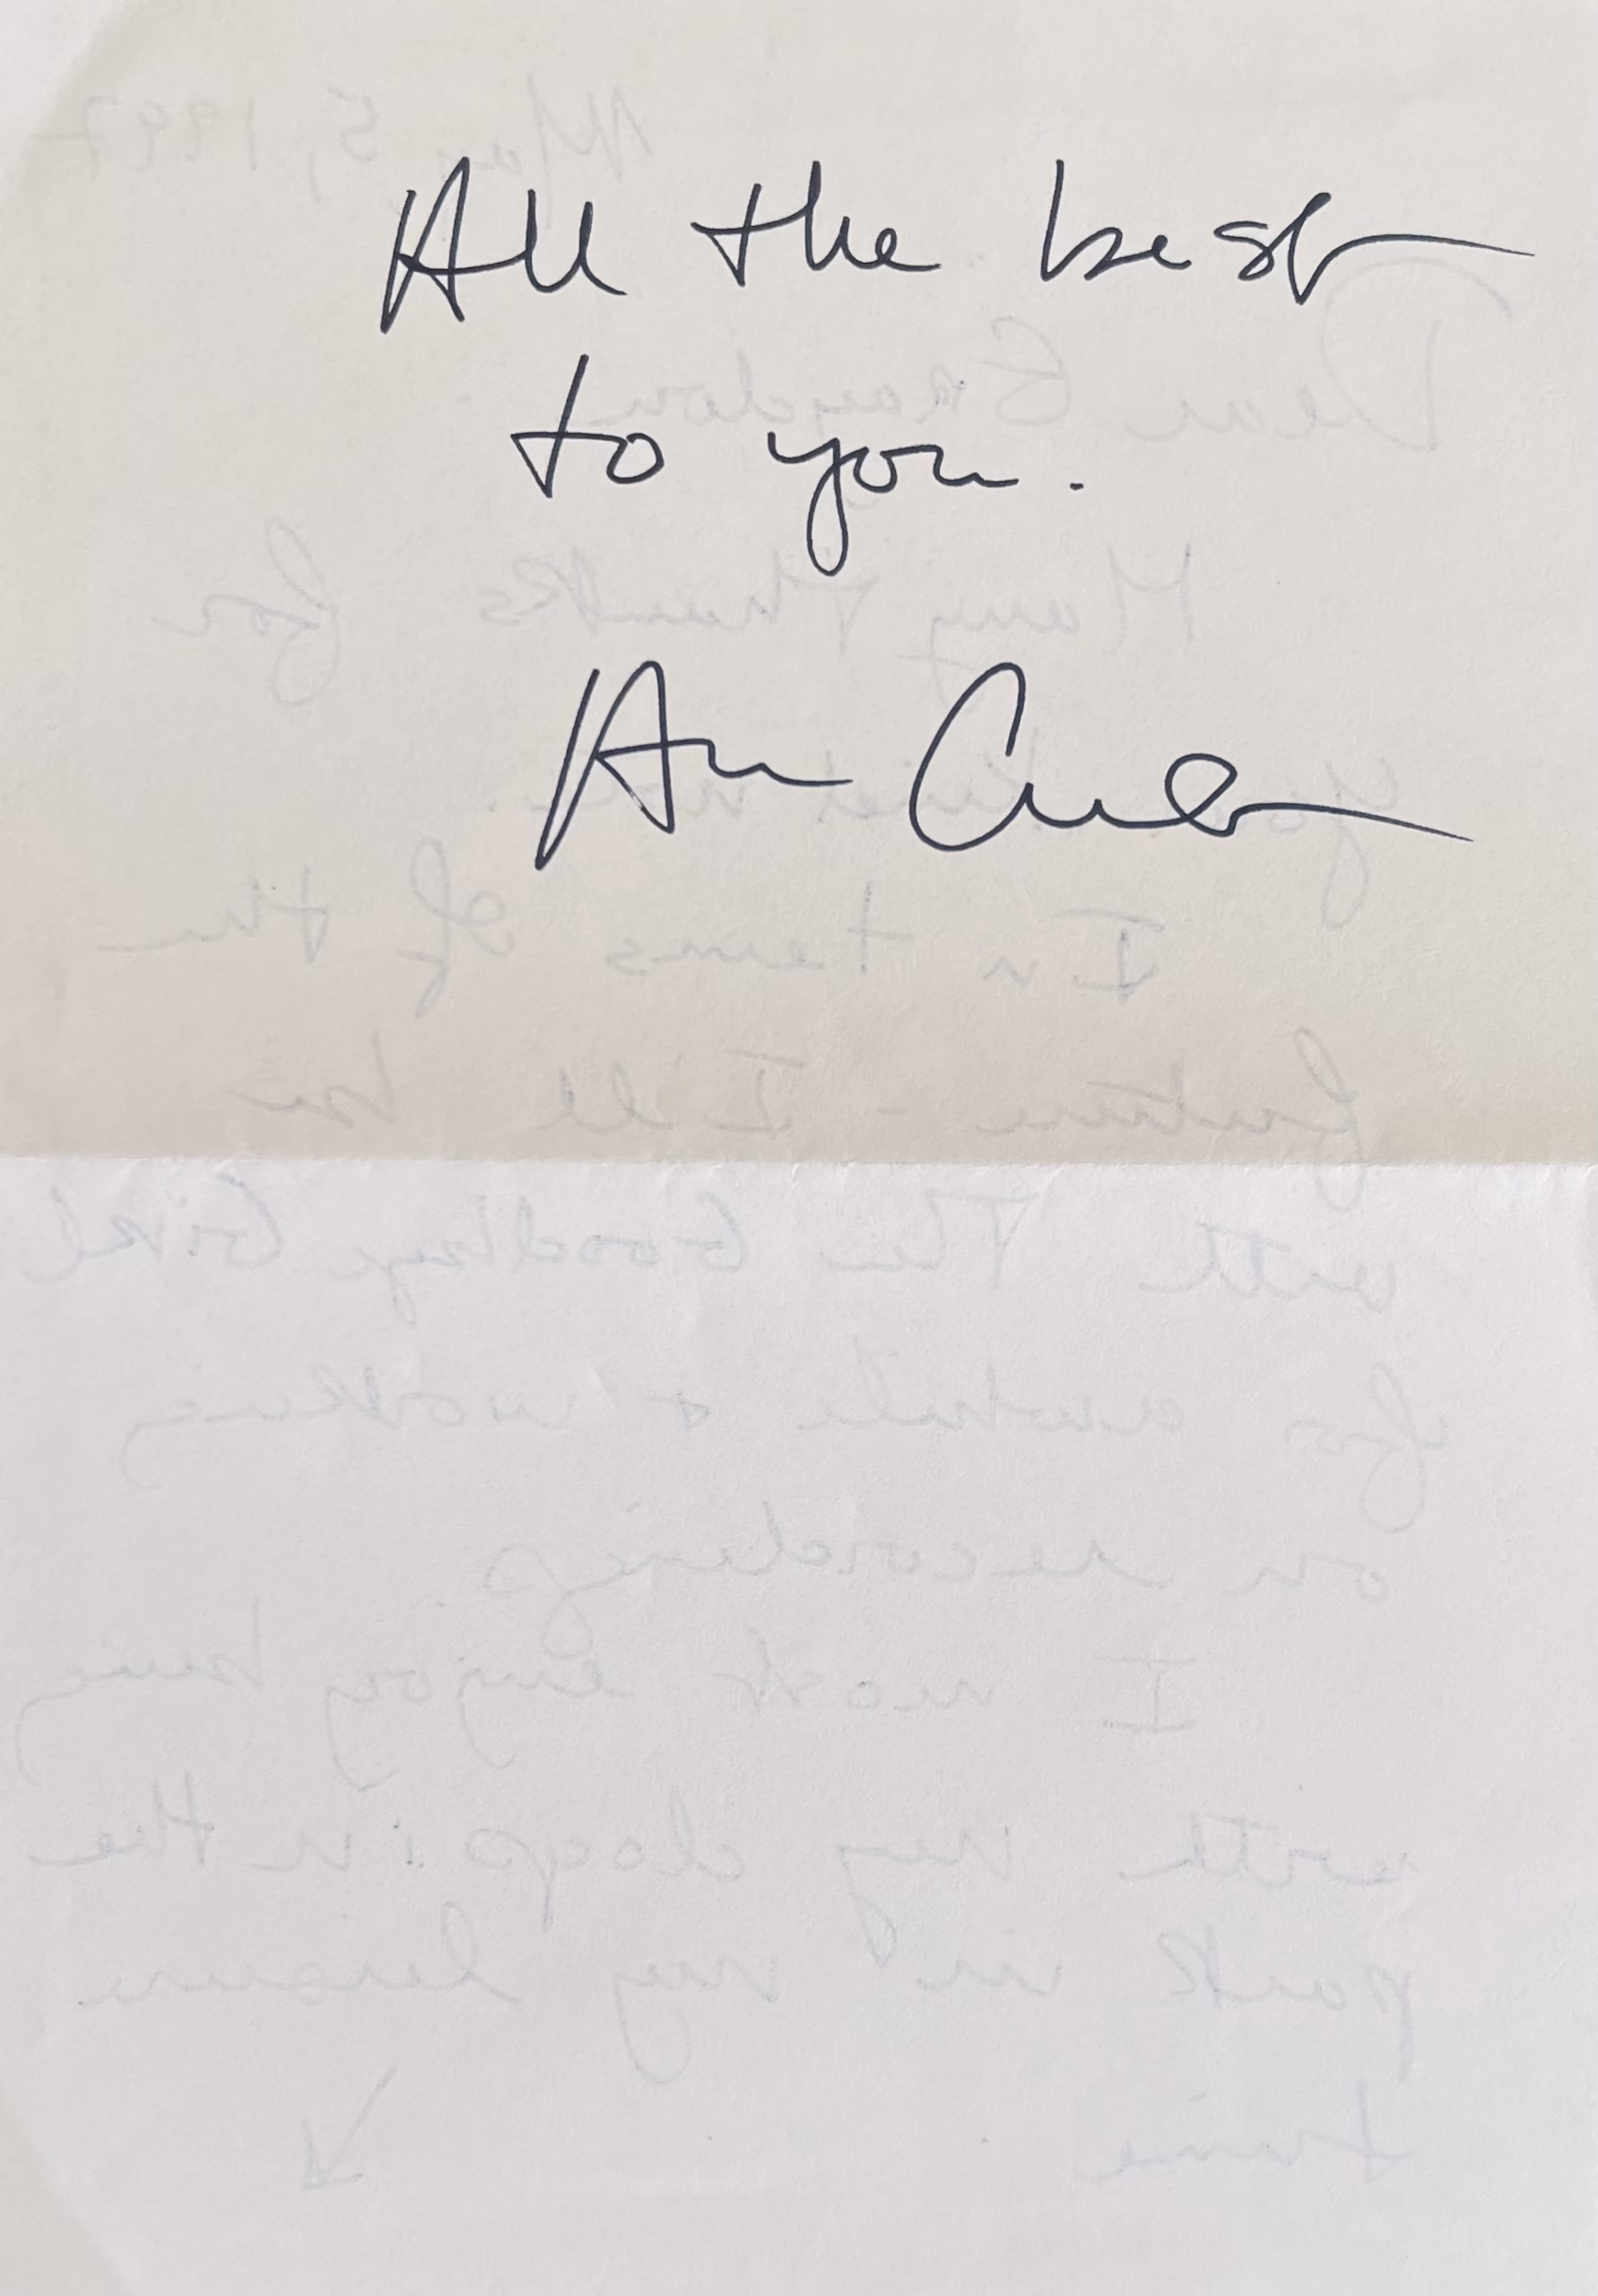 All the best
to you.
May 5, 1997
Dear Graydon
Many thanks for
your kind note.
In terms of the
future - I'll be
with The Goodbye Girl
for awhile + working
on recordings
I most enjoy being
with my dogs in the
park in my leisure
time